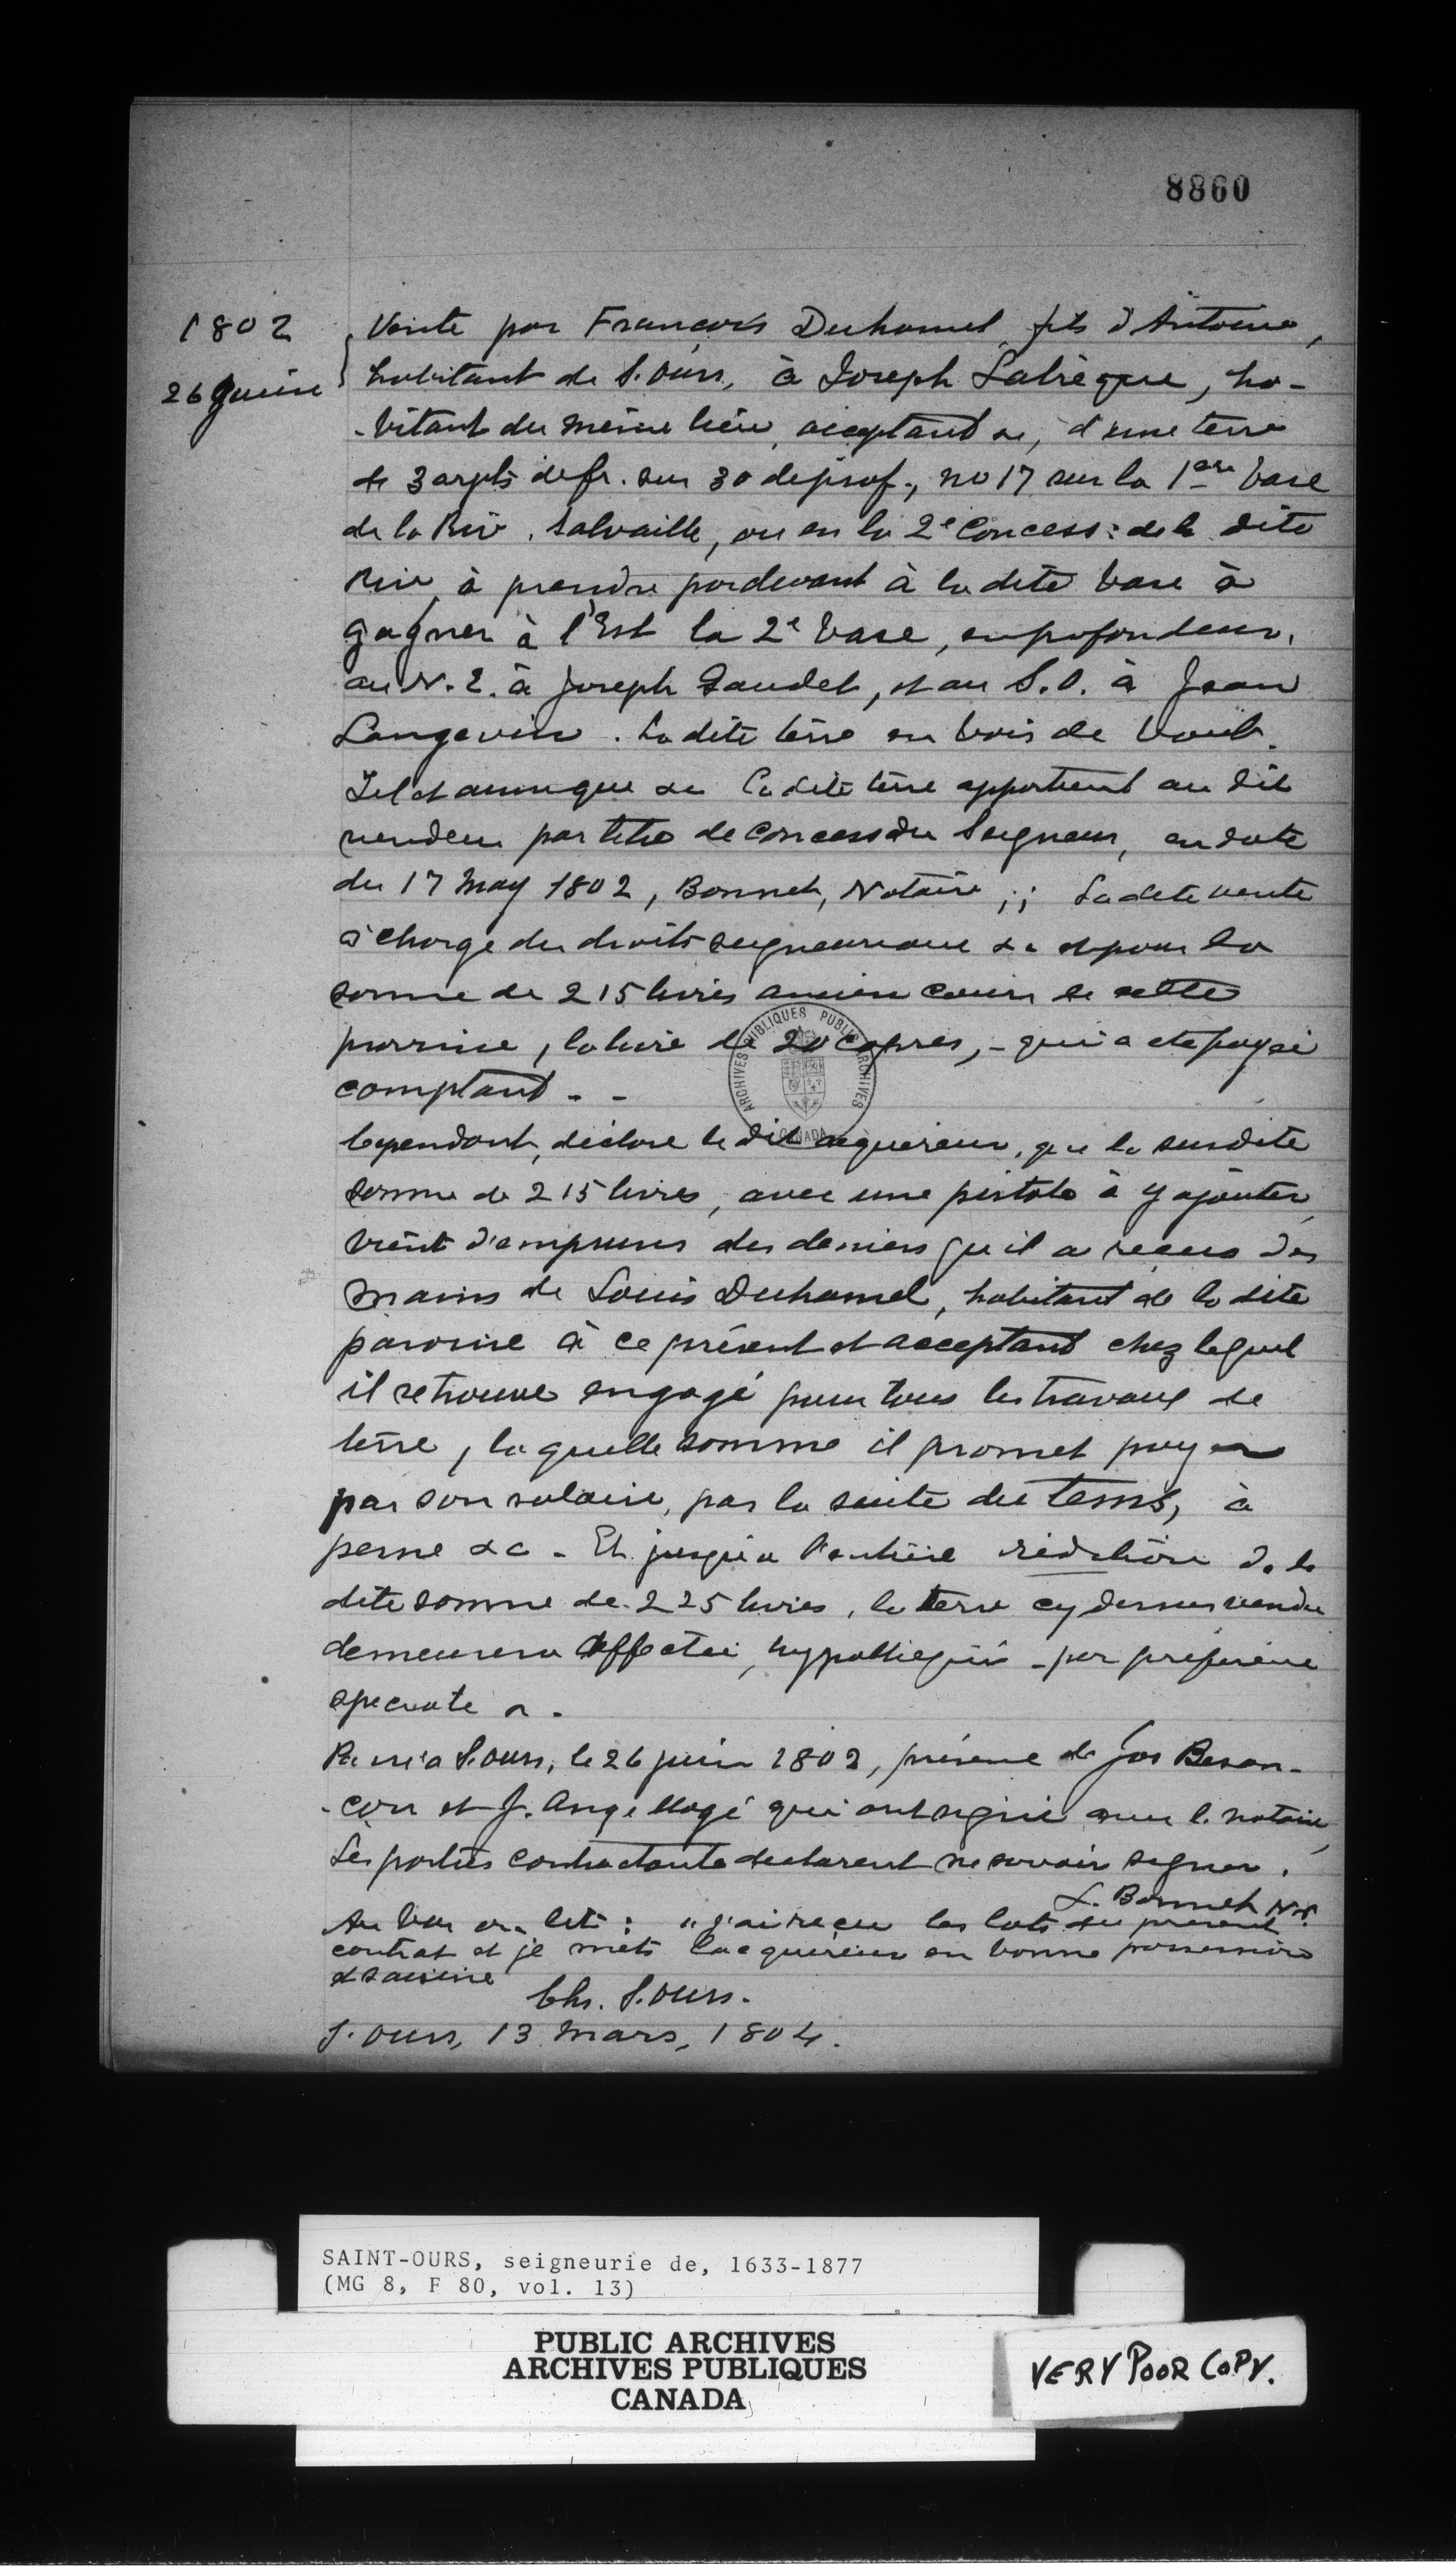 8860
1802
26 juin
Vente par François Duhamel fils d'Antoine,
habitant de S. Ours, à Joseph Labrèque, ha-
-bitant du même lieu, acceptant &c, d'une terre
de 3 arpts de fr. sur 30 de prof., no 17 sur la 1ere base
de la Riv. Salvaille, ou en la 2e Concess: de la dite
Riv. à prendre pardevant à la dite base à
gagner à l'Est la 2e base, en profondeur,
au N. E. à Joseph Gaudet, et au S. O. à Jean
Langevin. La dite terre en bois de bout.
Tel et ainsi que &c La dite terre appartient au dit
vendeur par titre de Concess du Seigneur, en date
du 17 May 1802, Bonnet, Notaire ;; La dite vente
à charge des droits seigneuriaux &c et pour la
somme de 215 livres ancien cours de cette
province, la livre de 20 copres, - qui a été payée
comptant - -
Cependant, déclare le dit acquéreur, que la susdite
somme de 215 livres, avec une pistole à y ajouter,
vient d'emprunt des deniers qu'il a reçus des
mains de Louis Duhamel, habitant de la dite
paroisse à ce présent et acceptant chez lequel
il se trouve engagé pour tous les travaux de
terre, laquelle somme il promet payer
par son salaire, par la suite du tems, à
peine &c - Et jusqu'à l'entière rédition de la
dite somme de 225 livres, la terre cy dessus vendue
demeurera affectée, hypothéquée - par préférence
speciale &c.
Passé à S. Ours, le 26 juin 1802, présence de Jos Besan-
-çon et J. Ange Hogé qui ont signé avec le notaire,
Les parties contractantes declarent ne savoir signer.
L. Bonnet N.P.
Au bas on lit : "J'ai reçu les lots du présent
contrat et je mets l'acquéreur en bonne possession
et saisine
Chs. S. Ours.
S. Ours, 13 Mars, 1804.
ARCHIVES PUBLIQUES PUBLIC ARCHIVES
CANADA
SAINT-OURS, seigneurie de, 1633-1877
(MG 8, F 80, vol. 13)
PUBLIC ARCHIVES
ARCHIVES PUBLIQUES
CANADA
VERY POOR COPY.